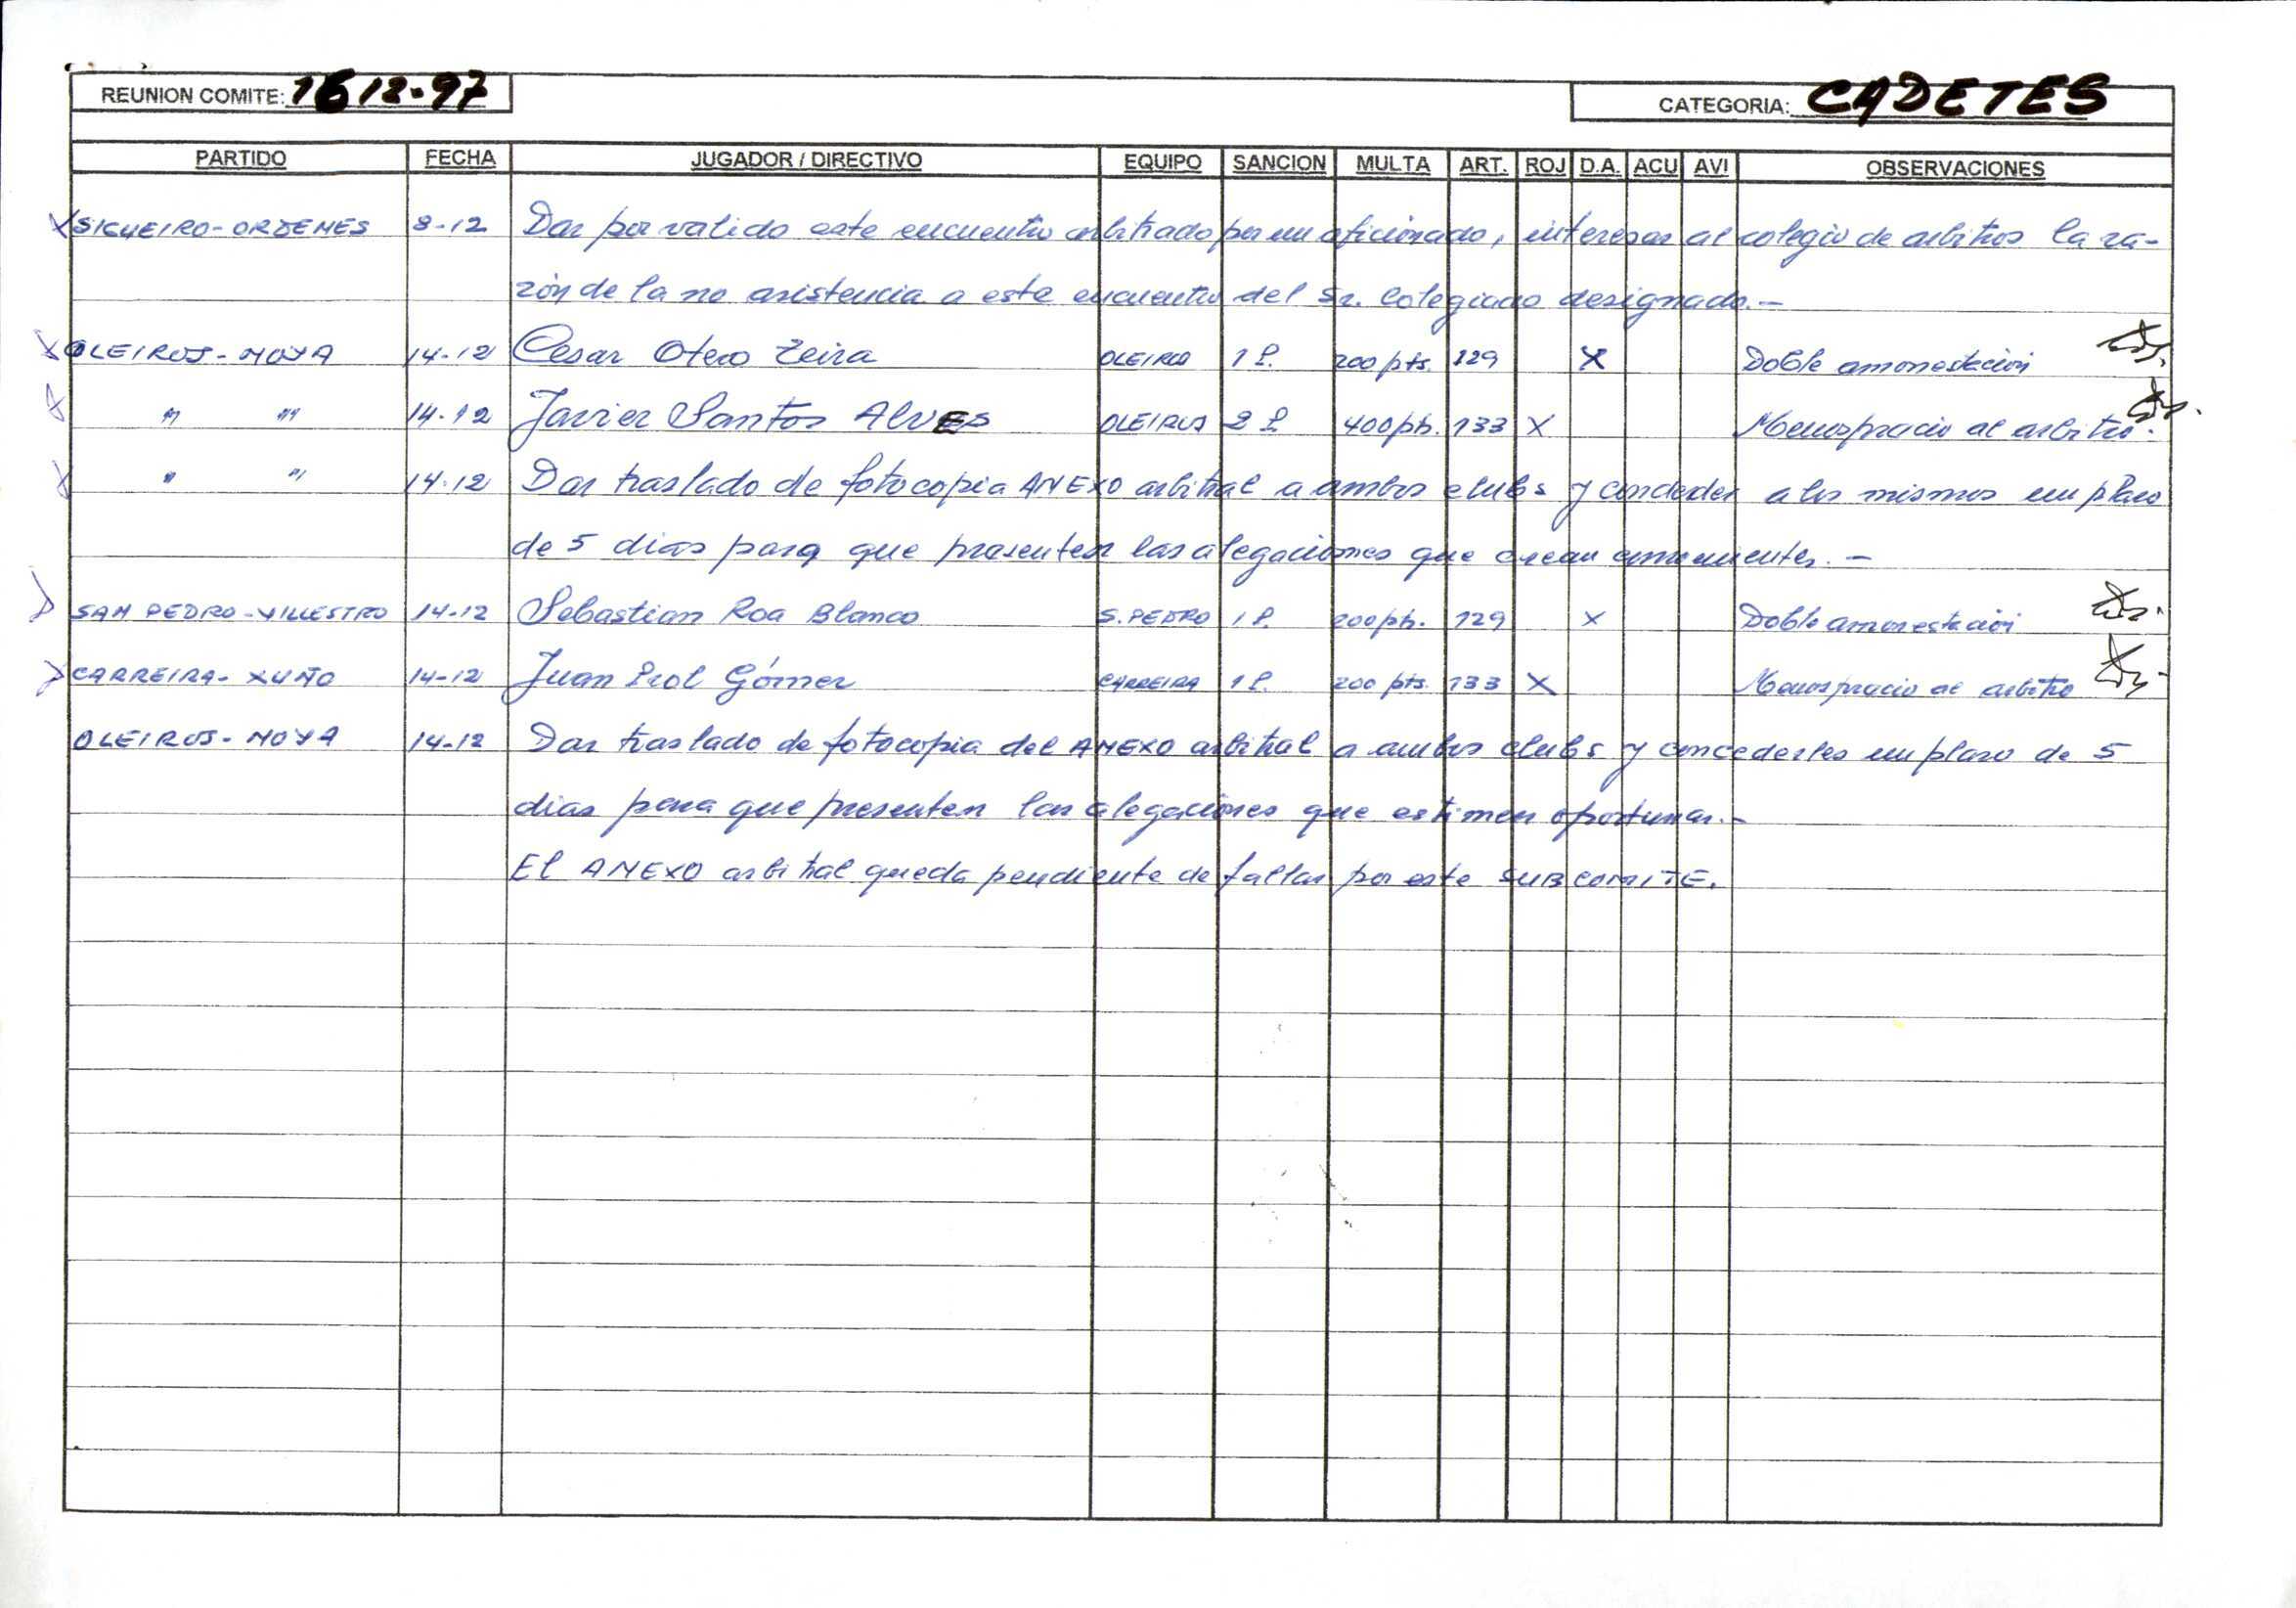 REUNION COMITE: 16 12-97 CATEGORIA: CADETES
PARTIDO FECHA JUGADOR / DIRECTIVO EQUIPO SANCION MULTA ART. ROJ D.A. ACU AVI OBSERVACIONES
SIGUEIRO-ORDENES 8-12 Dar por valido este encuentro arbitrado por un aficionado, interesar al colegio de arbitros la ra-
zón de la no asistencia a este encuentro del Sr. Colegiado designado.-
OLEIROS-NOYA 14-12 Cesar Otero OLEIROS 1 P. 200 pts. 129 X Doble amonestación
" " 14-12 Javier Santos Alves OLEIROS 2 P. 400 pts. 133 X Menosprecio al arbitro.
" " 14-12 Dar traslado de fotocopia ANEXO arbitral a ambos clubs y conceder a los mismos un plazo
de 5 dias para que presenten las alegaciones que crean convenientes.-
SAN PEDRO-VILLESTRO 14-12 Sebastian Roa Blanco S. PEDRO 1 P. 200 pts. 129 X Doble amonestación
CARREIRA-XUÑO 14-12 Juan Gómez CARREIRA 1 P. 200 pts. 133 X Menosprecio al arbitro
OLEIROS-NOYA 14-12 Dar traslado de fotocopia del ANEXO arbitral a ambos clubs y concederles un plazo de 5
dias para que presenten las alegaciones que estimen oportunas.-
El ANEXO arbitral queda pendiente de fallar por este SUBCOMITE.